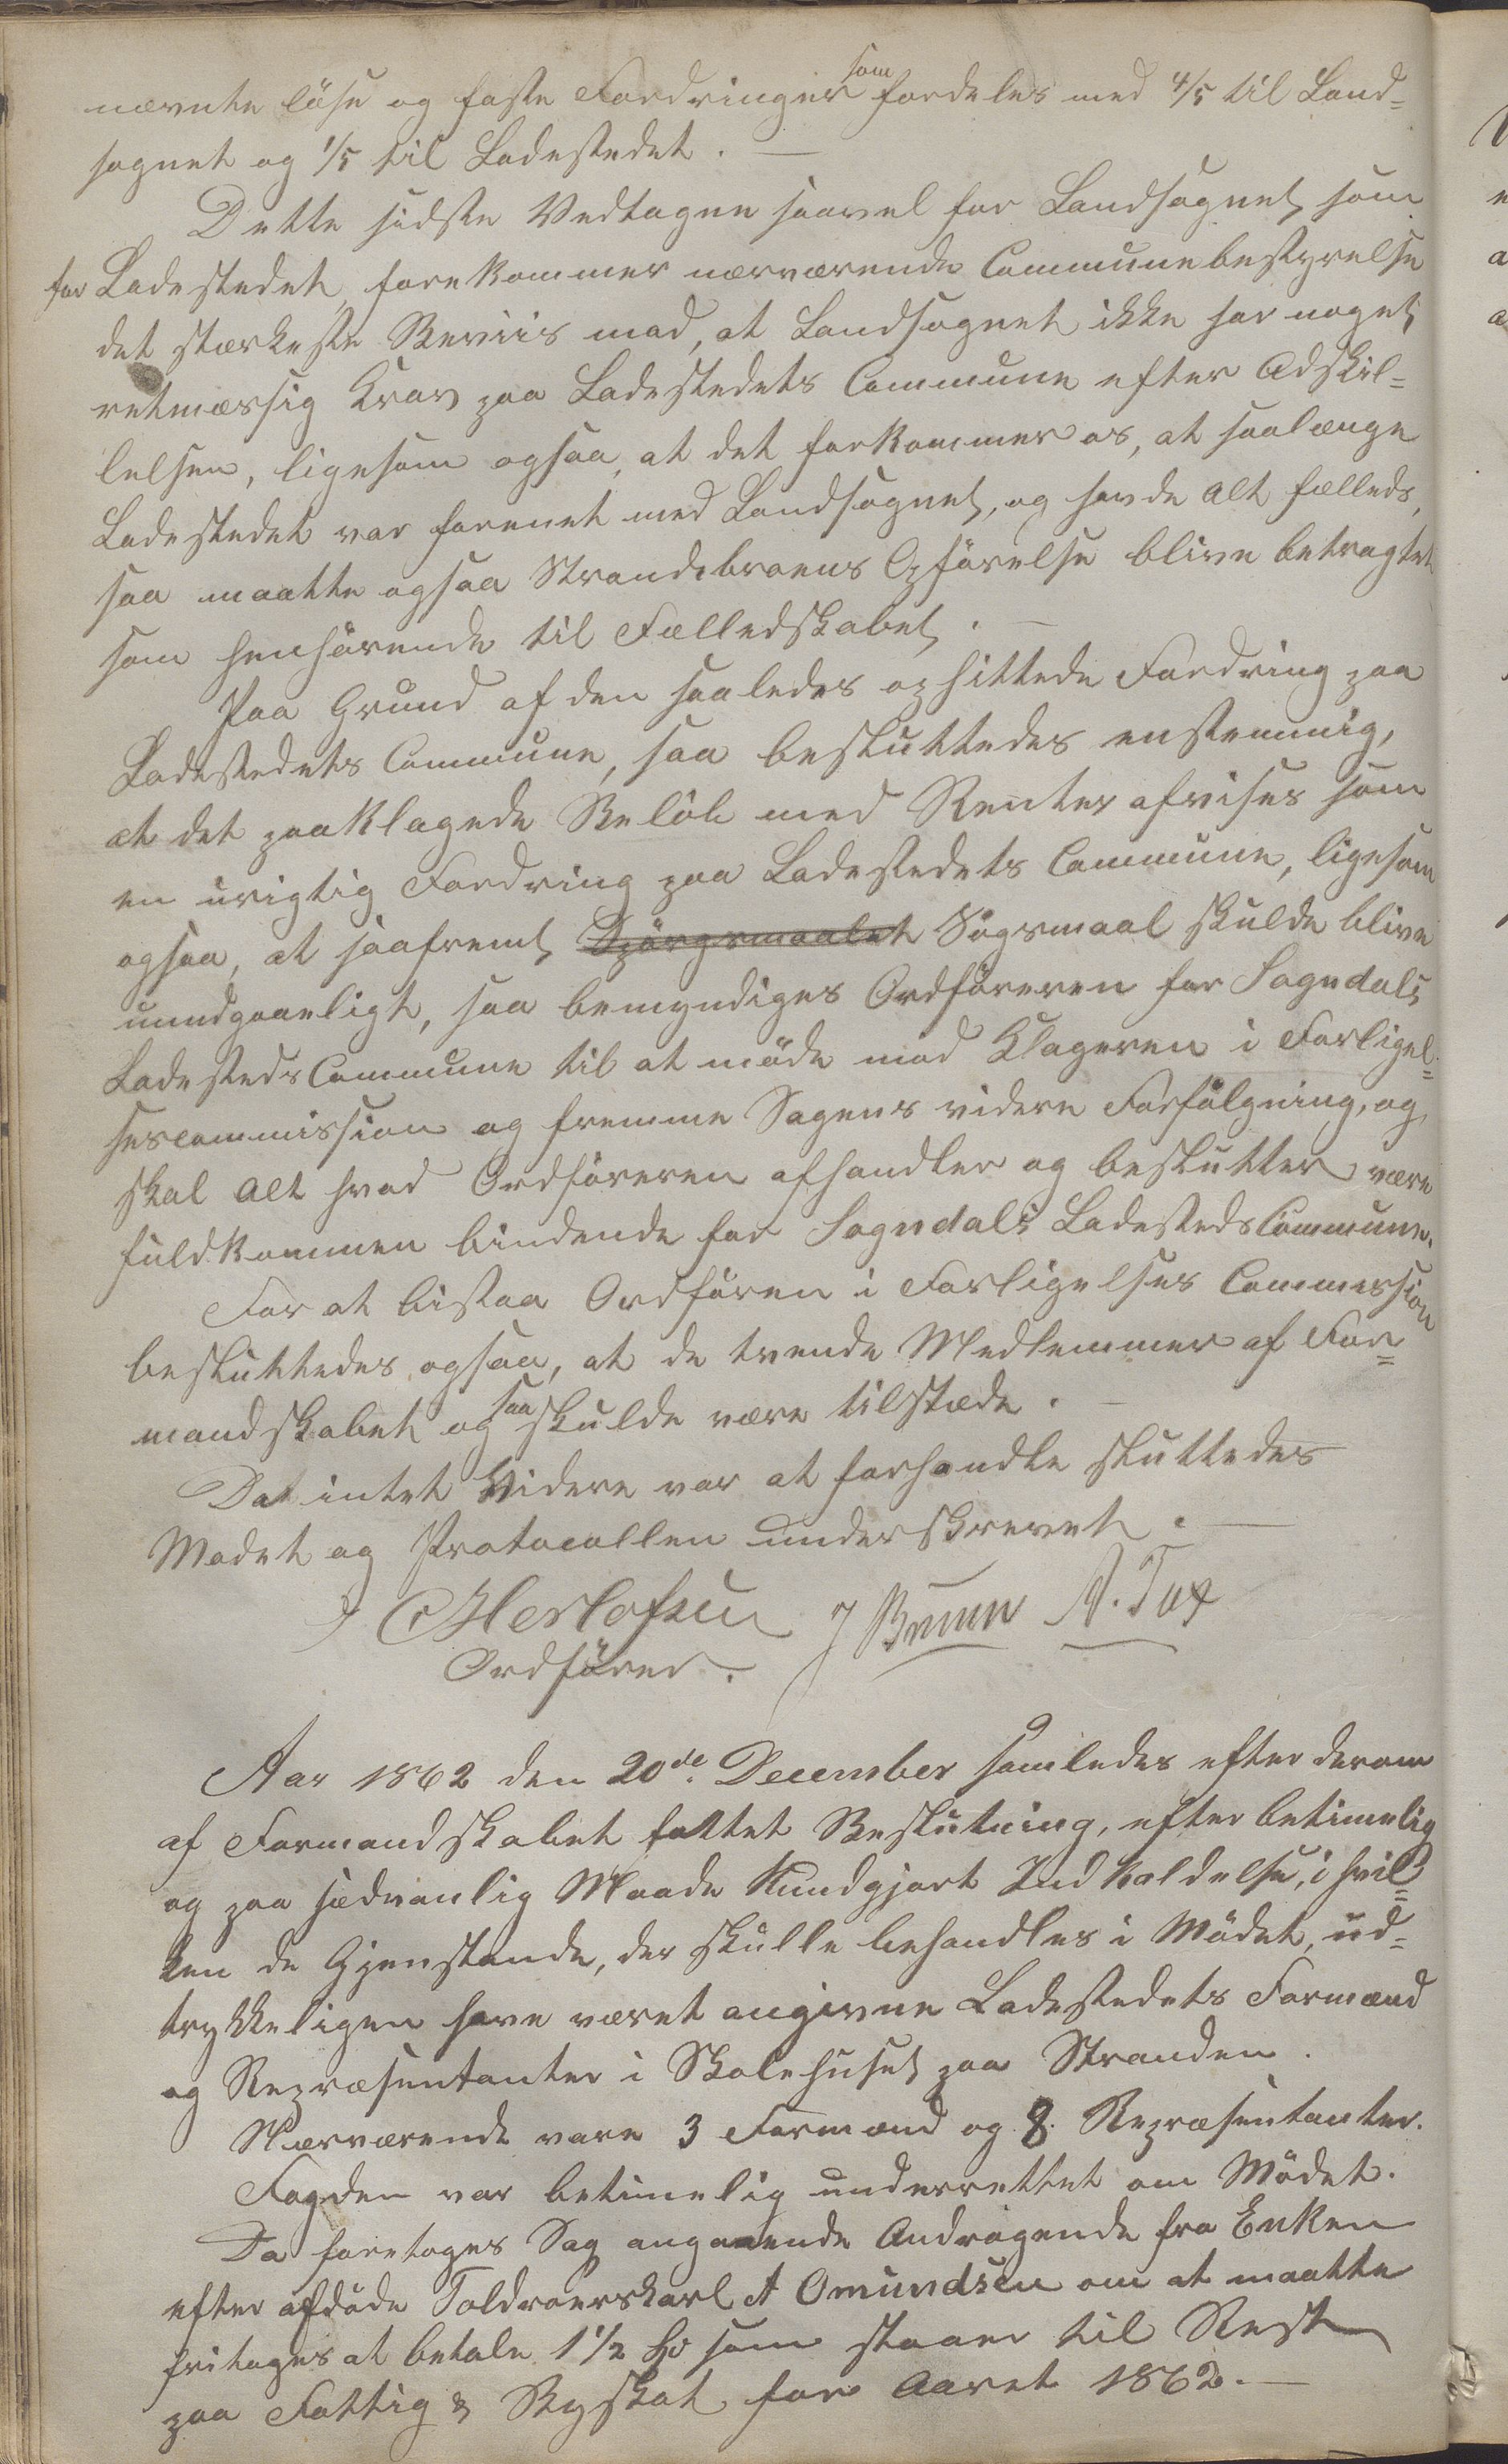 nævnte löse og faste Fordringer som fordeles med 4/5 til Land=
sognet og 1/5 til Ladestedet. —
Dette sidste Vedtagne saavel for Landsognet som
for Ladestedet, forekommer nærværende Communebestyrelse
det stærkeste Beviis mod, at Landsognet ikke har noget
retmæssig Krav paa Ladestedets Commune efter Adskil=
lelsen, ligesom ogsaa, at det forkommer os, at saalænge
Ladestedet var forenet med Landsognet, og havde Alt fælleds,
saa maatte ogsaa Strandebroens Opförelse blive betragtet
som henhörende til Fælledskabet. —
Paa Grund af den saaledes ophittede Fordring paa
Ladestedets Commune, saa besluttedes enstemmig,
at det paaklagede Belöb med Renter afvises som
en urigtig Fordring paa Ladestedets Commune, ligesom
ogsaa, at saafremt Spörgsmaalet Sögsmaal skulde blive
uundgaaeligt, saa bemyndiges Ordföreren for Sogndals
Ladesteds Commune til at möde mod Klageren i Forligel=
sescommission og fremme Sagens videre Forfölgning, og
skal Alt hvad Ordföreren afhandler og beslutter være
fuldkommen bindende for Sogndals Ladesteds Commune.
For at bistaa Ordfören i Forligelses Commission
besluttedes ogsaa, at de tvende Medlemmer af For=
mandskabet og saa skulde være tilstæde. —
Dat intet Videre var at forhandle sluttedes
Modet og Protocollen underskrevet. —
C Herlofsen J Bruun A. Tax
Ordförer.
Aar 1862 den 20de December samledes efter derom
af Formandskabet fattet Beslutning, efter betimelig
og paa sædvanlig Maade Kundgjort Indkaldelse, i hvil=
ken de Gjenstande, der skulle behandles i Mödet, ud=
trykkeligen have været angivne Ladestedets Formænd
og Repræsentanter i Skolehuset paa Stranden.
Nærværende vare 3 Formænd og 8 Repræsentanter.
Fogden var betimelig underrettet om Mödet.
Da foretoges Sag angaaende Andragende fra Enken
efter afdöde Toldroerskarl A Omundsen om at maatte
fritages at betale 1 1/2 som staaer til Rest
paa Fattig & Byskat for Aaret 1862. —